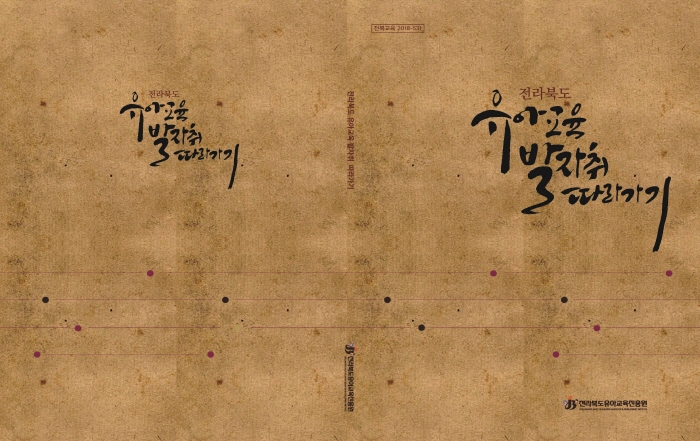 전라북도
유아교육
발자취
따라가기
전라북도 유아교육 발자취 따라가기
전라북도유아교육진흥원
전라북도
유아교육
발자취
따라가기
전라북도유아교육진흥원